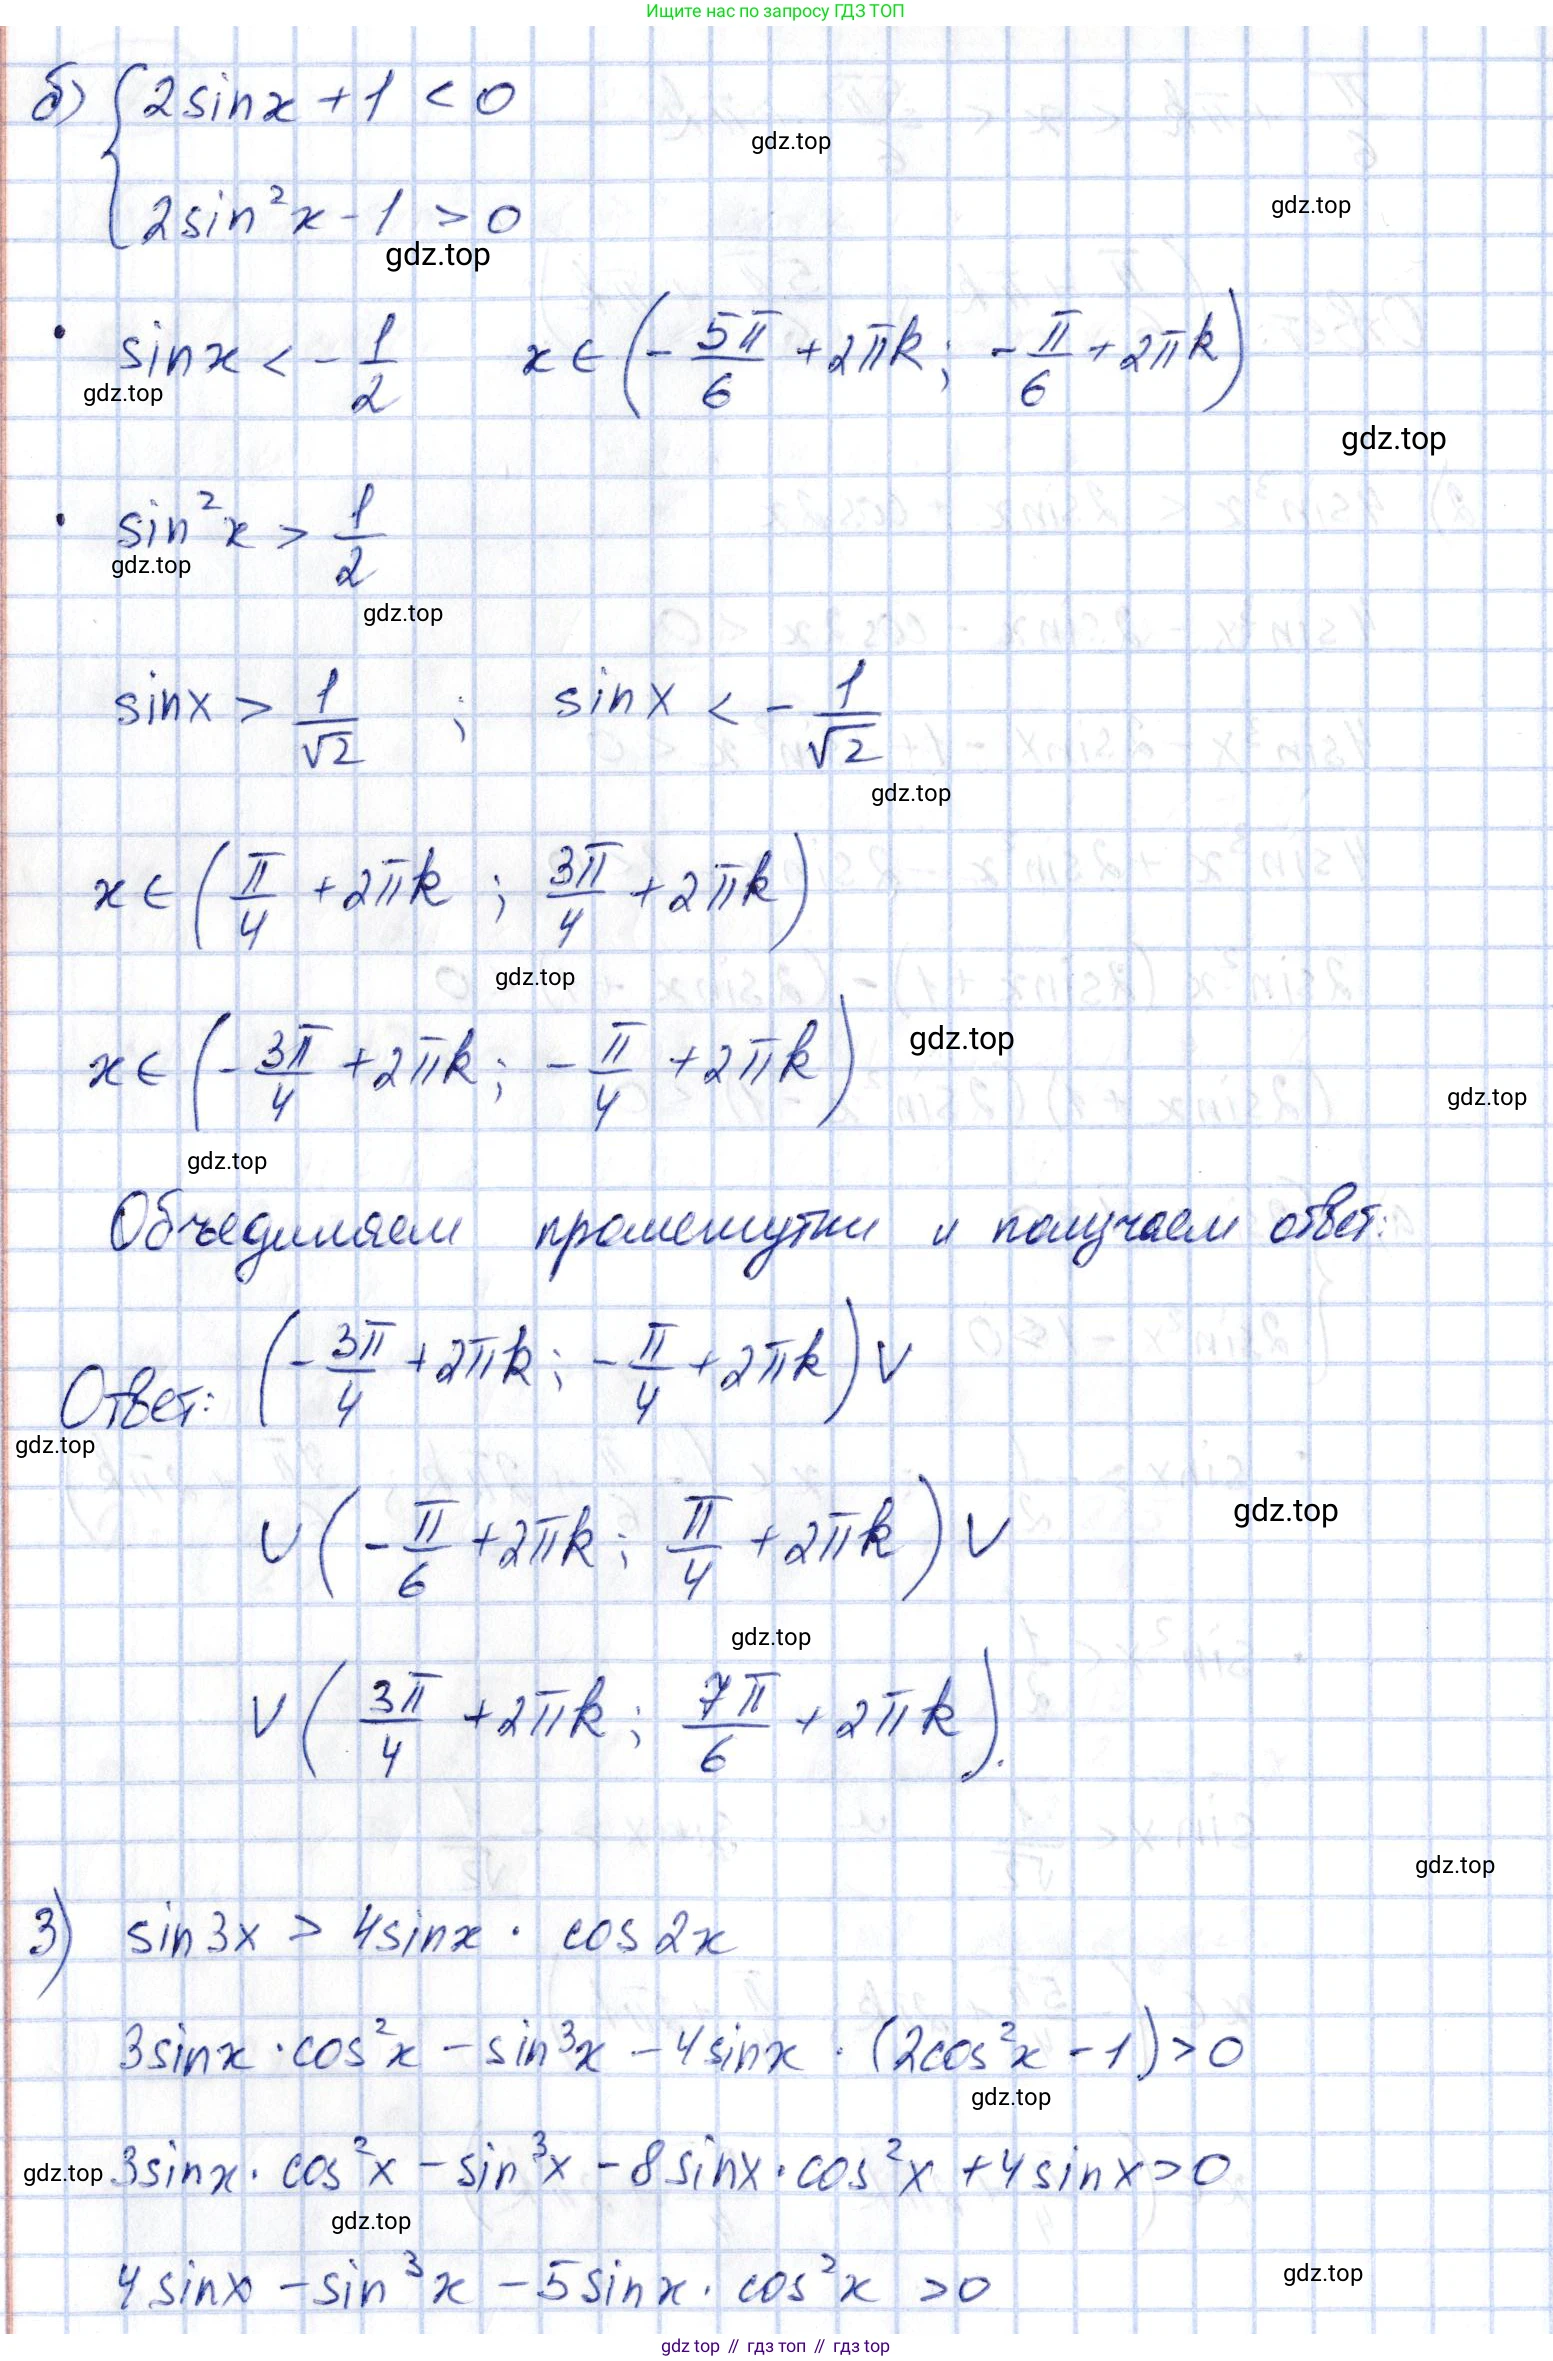 Ищите нас по запросу ГДЗ ТОП
б) { 2sinx + 1 < 0
gdz.top
2sin²x - 1 > 0
gdz.top
gdz.top
• sinx < - 1/2   x ∈ (- 5π/6 + 2πk ; - π/6 + 2πk)
gdz.top
gdz.top
• sin²x > 1/2
gdz.top
gdz.top
sinx > 1/√2 ; sinx < - 1/√2
gdz.top
x ∈ (π/4 + 2πk ; 3π/4 + 2πk)
gdz.top
x ∈ (- 3π/4 + 2πk ; - π/4 + 2πk)
gdz.top
gdz.top
gdz.top
Объединяем промежутки и получаем ответ:
Ответ: (- 3π/4 + 2πk ; - π/4 + 2πk) ∪
gdz.top
∪ (- π/6 + 2πk ; π/4 + 2πk) ∪
gdz.top
gdz.top
∪ (3π/4 + 2πk ; 7π/6 + 2πk).
gdz.top
3) sin3x > 4sinx · cos2x
3sinx · cos²x - sin³x - 4sinx · (2cos²x - 1) > 0
gdz.top
gdz.top 3sinx · cos²x - sin³x - 8sinx · cos²x + 4sinx > 0
gdz.top
4sinx - sin³x - 5sinx · cos²x > 0
gdz.top
gdz top // гдз топ // gdz top